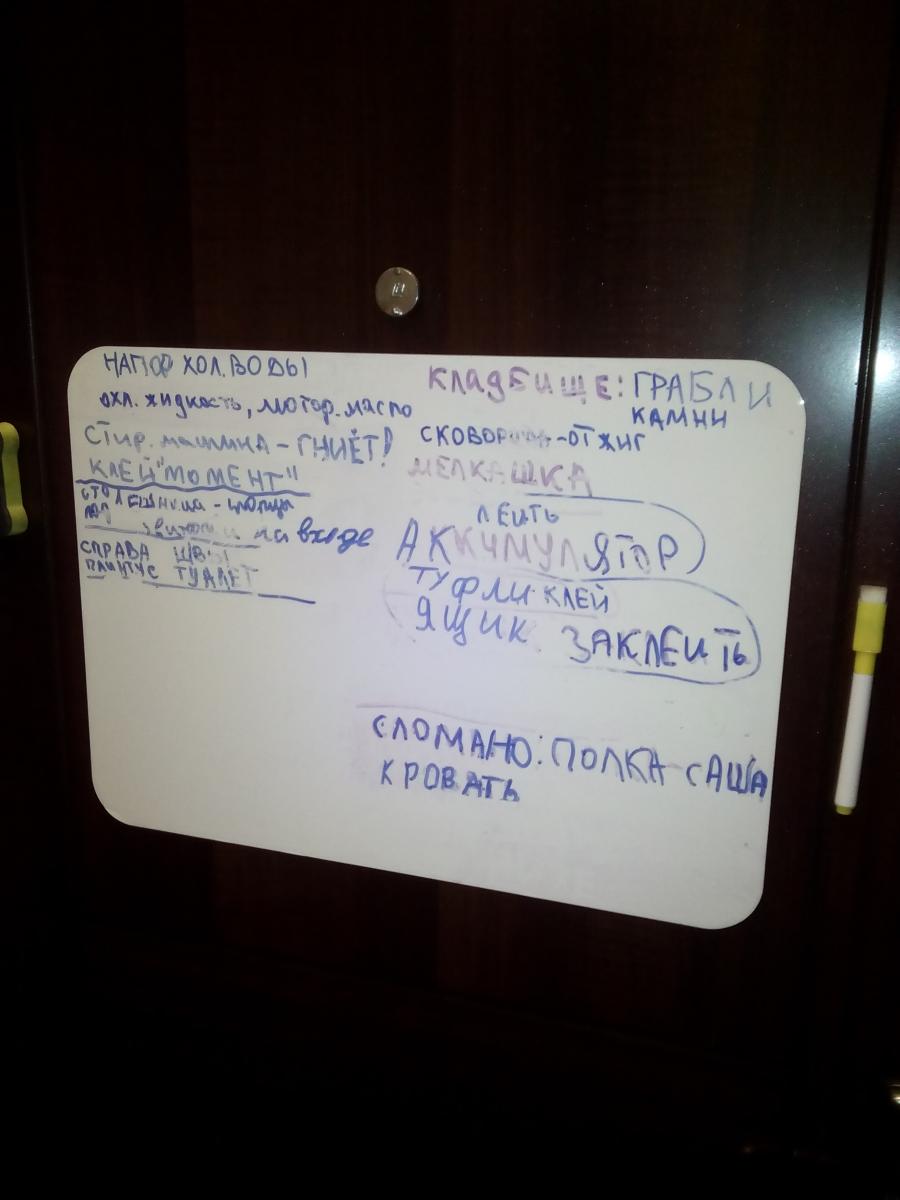 НАПОР ХОЛ. ВОДЫ
охл. жидкость, мотор. масло
Стир. машина - ГНИЁТ!
КЛЕЙ "МОМЕНТ"
на входе
СПРАВА ШВЫ
ПЛИНТУС ТУАЛЕТ
КЛАДБИЩЕ: ГРАБЛИ
КАМНИ
СКОВОРОДА - ОТЖИГ
МЕЛКАШКА
ЛЕИТЬ
АККУМУЛЯТОР
ТУФЛИ КЛЕЙ
ЯЩИК ЗАКЛЕИТЬ
СЛОМАНО: ПОЛКА САША
КРОВАТЬ